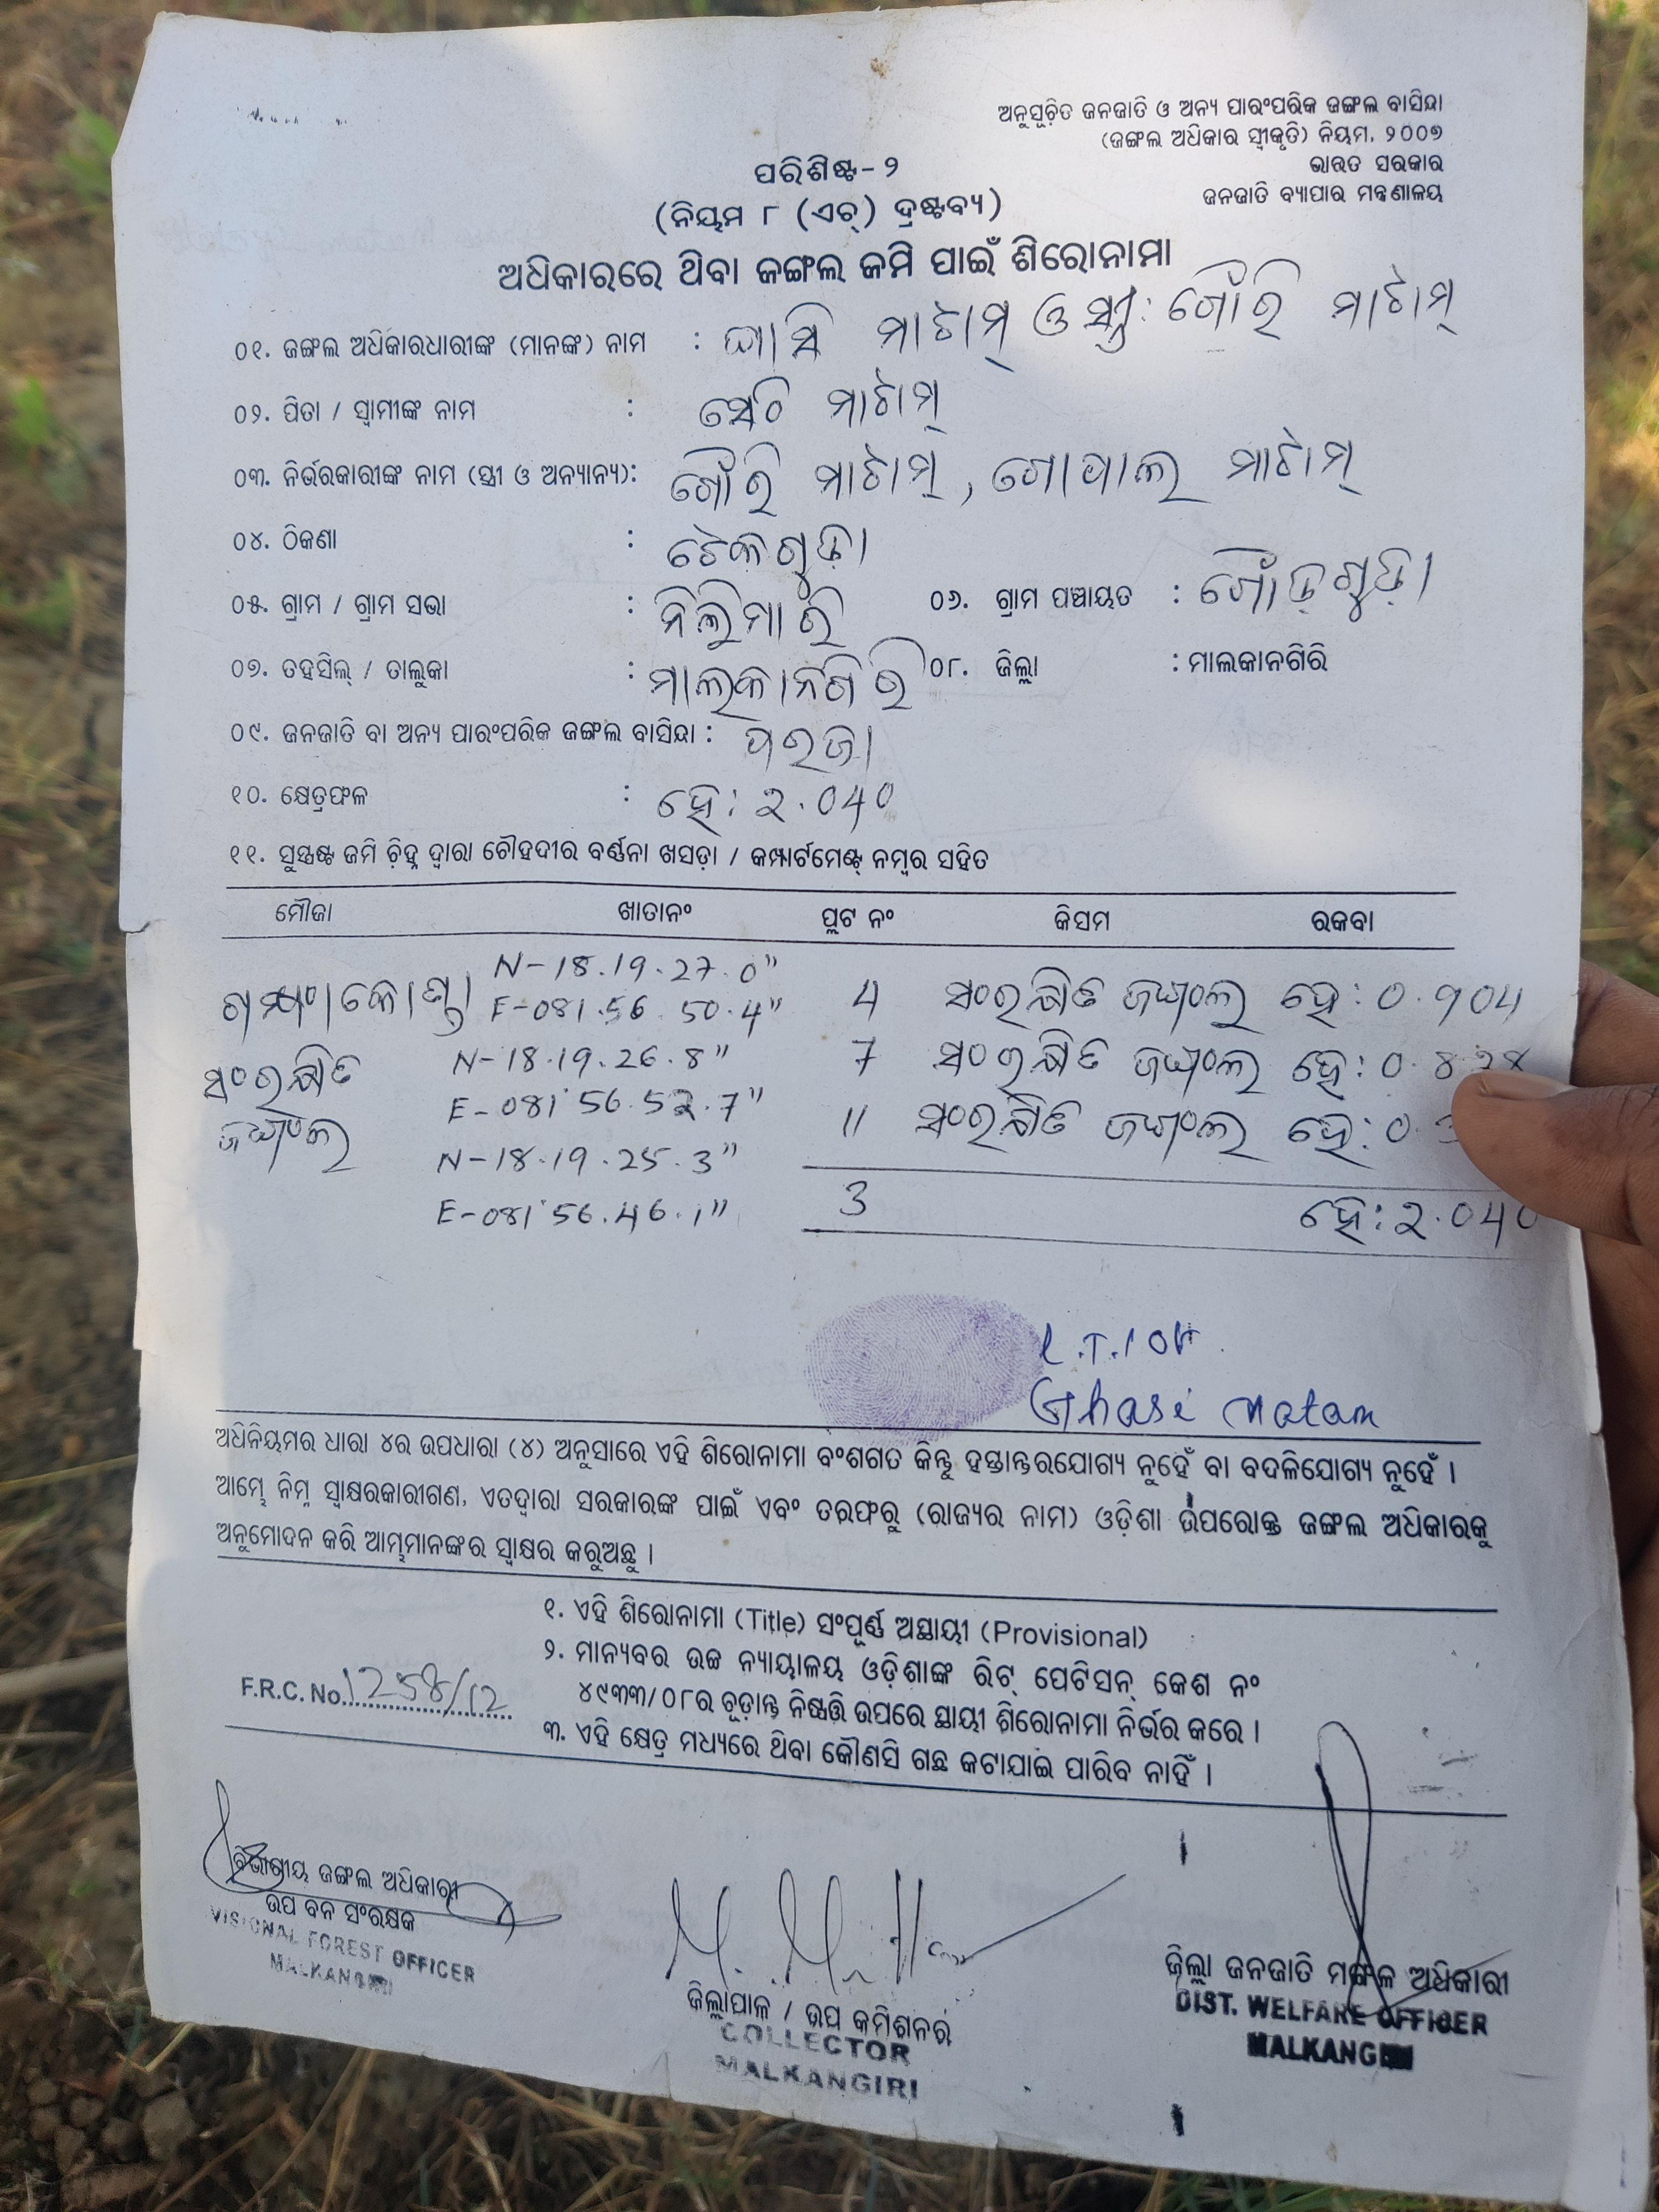 ଅନୁସୂଚିତ ଜନଜାତି ଓ ଅନ୍ୟ ପାରଂପରିକ ଜଙ୍ଗଲ ବାସିନ୍ଦା
(ଜଙ୍ଗଲ ଅଧିକାର ସ୍ୱୀକୃତି) ନିୟମ, ୨୦୦୭
ଭାରତ ସରକାର
ଜନଜାତି ବ୍ୟାପାର ମନ୍ତ୍ରଣାଳୟ
ପରିଶିଷ୍ଟ-୨
(ନିୟମ ୮ (ଏଚ୍) ଦ୍ରଷ୍ଟବ୍ୟ)
ଅଧିକାରରେ ଥିବା ଜଙ୍ଗଲ ଜମି ପାଇଁ ଶିରୋନାମା
୦୧. ଜଙ୍ଗଲ ଅଧିକାରଧାରୀଙ୍କ (ମାନଙ୍କ) ନାମ : ଘାସି ମାଟାମ୍ ଓ ସ୍ତ୍ରୀ: ଗୌରି ମାଟାମ୍
୦୨. ପିତା / ସ୍ୱାମୀଙ୍କ ନାମ : ସେଠି ମାଟାମ୍
୦୩. ନିର୍ଭରକାରୀଙ୍କ ନାମ (ସ୍ତ୍ରୀ ଓ ଅନ୍ୟାନ୍ୟ): ଗୌରି ମାଟାମ୍, ଗୋପାଲ ମାଟାମ୍
୦୪. ଠିକଣା : ଟେକଗୁଡ଼ା
୦୫. ଗ୍ରାମ / ଗ୍ରାମ ସଭା : ନିଲିମାରି ୦୬. ଗ୍ରାମ ପଞ୍ଚାୟତ : ଗୌଡ଼ଗୁଡ଼ା
୦୭. ତହସିଲ୍ / ତାଲୁକା : ମାଲକାନଗିରି ୦୮. ଜିଲ୍ଲା : ମାଲକାନଗିରି
୦୯. ଜନଜାତି ବା ଅନ୍ୟ ପାରଂପରିକ ଜଙ୍ଗଲ ବାସିନ୍ଦା : ପରଜା
୧୦. କ୍ଷେତ୍ରଫଳ : ହେ: ୨.040
୧୧. ସୁସ୍ପଷ୍ଟ ଜମି ଚିହ୍ନ ଦ୍ୱାରା ଚୌହଦୀର ବର୍ଣ୍ଣନା ଖସଡ଼ା / କମ୍ପାର୍ଟମେଣ୍ଟ୍ ନମ୍ବର ସହିତ
ମୌଜା ଖାତାନଂ ପ୍ଲଟ ନଂ କିସମ ରକବା
N-18.19.27.0"
E-081.56.50.4" 4 ସଂରକ୍ଷିତ ଜଙ୍ଗଲ ହେ: 0.904
ସଂରକ୍ଷିତ N-18.19.26.8" 7 ସଂରକ୍ଷିତ ଜଙ୍ଗଲ ହେ: 0.
ଜଙ୍ଗଲ E-081 56.52.7" 11 ସଂରକ୍ଷିତ ଜଙ୍ଗଲ ହେ: 0.
N-18.19.25.3"
E-081 56.46.1" 3 ହେ: ୨.040
L.T.I OF
Ghasi Matam
ଅଧିନିୟମର ଧାରା ୪ର ଉପଧାରା (୪) ଅନୁସାରେ ଏହି ଶିରୋନାମା ବଂଶଗତ କିନ୍ତୁ ହସ୍ତାନ୍ତରଯୋଗ୍ୟ ନୁହେଁ ବା ବଦଳିଯୋଗ୍ୟ ନୁହେଁ ।
ଆମ୍ଭେ ନିମ୍ନ ସ୍ୱାକ୍ଷରକାରୀଗଣ, ଏତଦ୍ୱାରା ସରକାରଙ୍କ ପାଇଁ ଏବଂ ତରଫରୁ (ରାଜ୍ୟର ନାମ) ଓଡ଼ିଶା ଉପରୋକ୍ତ ଜଙ୍ଗଲ ଅଧିକାରକୁ
ଅନୁମୋଦନ କରି ଆମ୍ଭମାନଙ୍କର ସ୍ୱାକ୍ଷର କରୁଅଛୁ ।
୧. ଏହି ଶିରୋନାମା (Title) ସଂପୂର୍ଣ୍ଣ ଅସ୍ଥାୟୀ (Provisional)
୨. ମାନ୍ୟବର ଉଚ୍ଚ ନ୍ୟାୟାଳୟ ଓଡ଼ିଶାଙ୍କ ରିଟ୍ ପେଟିସନ୍ କେଶ ନଂ
୪୯୩୩/୦୮ର ଚୂଡ଼ାନ୍ତ ନିଷ୍ପତ୍ତି ଉପରେ ସ୍ଥାୟୀ ଶିରୋନାମା ନିର୍ଭର କରେ ।
୩. ଏହି କ୍ଷେତ୍ର ମଧ୍ୟରେ ଥିବା କୌଣସି ଗଛ କଟାଯାଇ ପାରିବ ନାହିଁ ।
F.R.C. No. 1258/12
ବିଭାଗୀୟ ଜଙ୍ଗଲ ଅଧିକାରୀ
ଉପ ବନ ସଂରକ୍ଷକ
VISIONAL FOREST OFFICER
MALKANGIRI
ଜିଲ୍ଲାପାଳ / ଉପ କମିଶନର
COLLECTOR
MALKANGIRI
ଜିଲ୍ଲା ଜନଜାତି ମଙ୍ଗଳ ଅଧିକାରୀ
DIST. WELFARE OFFICER
MALKANGIRI